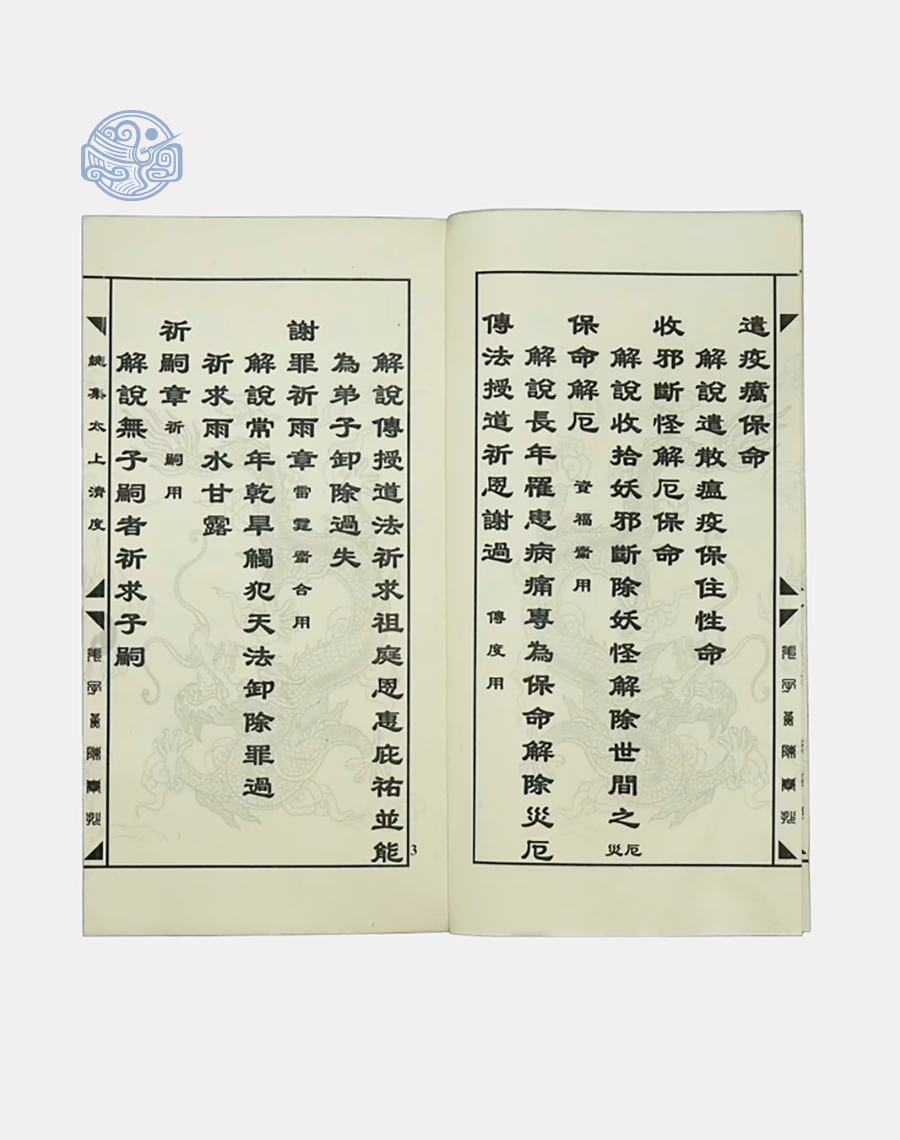 遣疫癘保命
解說遣散瘟疫保住性命
收邪斷怪解厄保命
解說收拾妖邪斷除妖怪解除世間之災厄
保命解厄 資福齋用
解說長年罹患病痛專為保命解除災厄
傳法授道祈恩謝過 傳度用
解說傳授道法祈求祖庭恩惠庇祐並能
為弟子卸除過失
謝罪祈雨章雷霆齋合用
解說常年乾旱觸犯天法卸除罪過
祈求雨水甘露
祈嗣章祈嗣用
解說無子嗣者祈求子嗣
集太上濟度
3